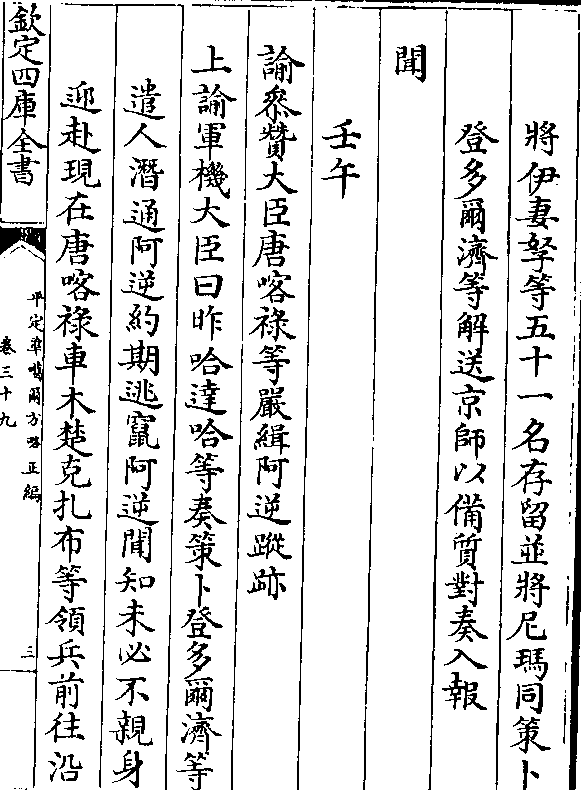 將伊妻孥等五十一名存留並將尼瑪同策卜
登多爾濟等解送京師以備質對奏入報
聞
壬午
諭叅贊大臣唐喀祿等嚴緝阿逆蹤跡
上諭軍機大臣曰昨哈達哈等奏策卜登多爾濟等
遣人潛通阿逆約期逃竄阿逆聞知未必不親身
迎赴現在唐喀祿車木楚克扎布等領兵前往沿
欽定四庫全書
平定準噶爾方略正編
卷三十九
三